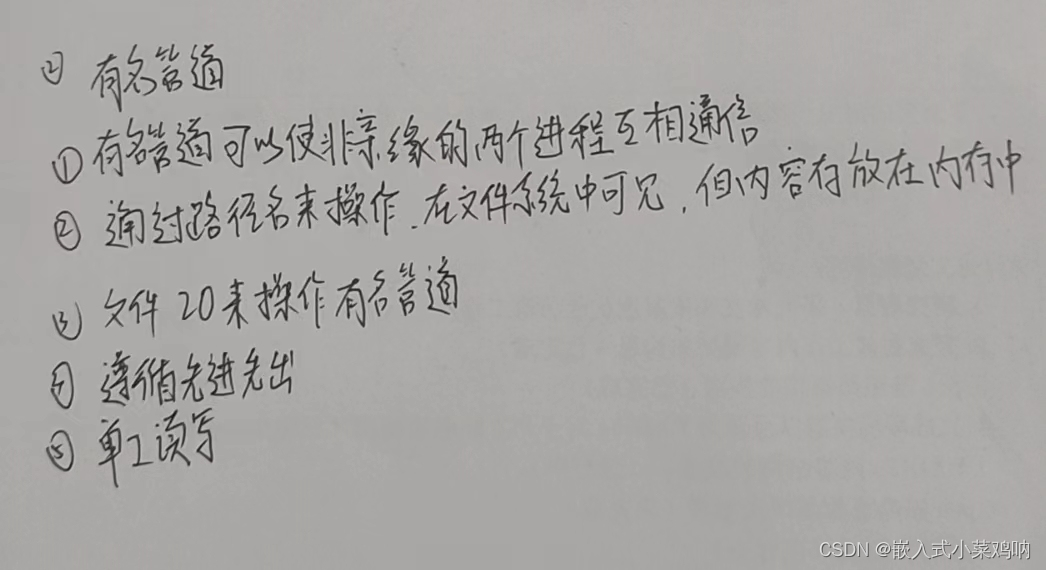 ② 有名管道
① 有名管道可以使非亲缘的两个进程互相通信
② 通过路径名来操作.在文件系统中可见,但内容存放在内存中
③ 文件 20来操作有名管道
④ 遵循先进先出
⑤ 单工读写
CSDN @嵌入式小菜鸡呐